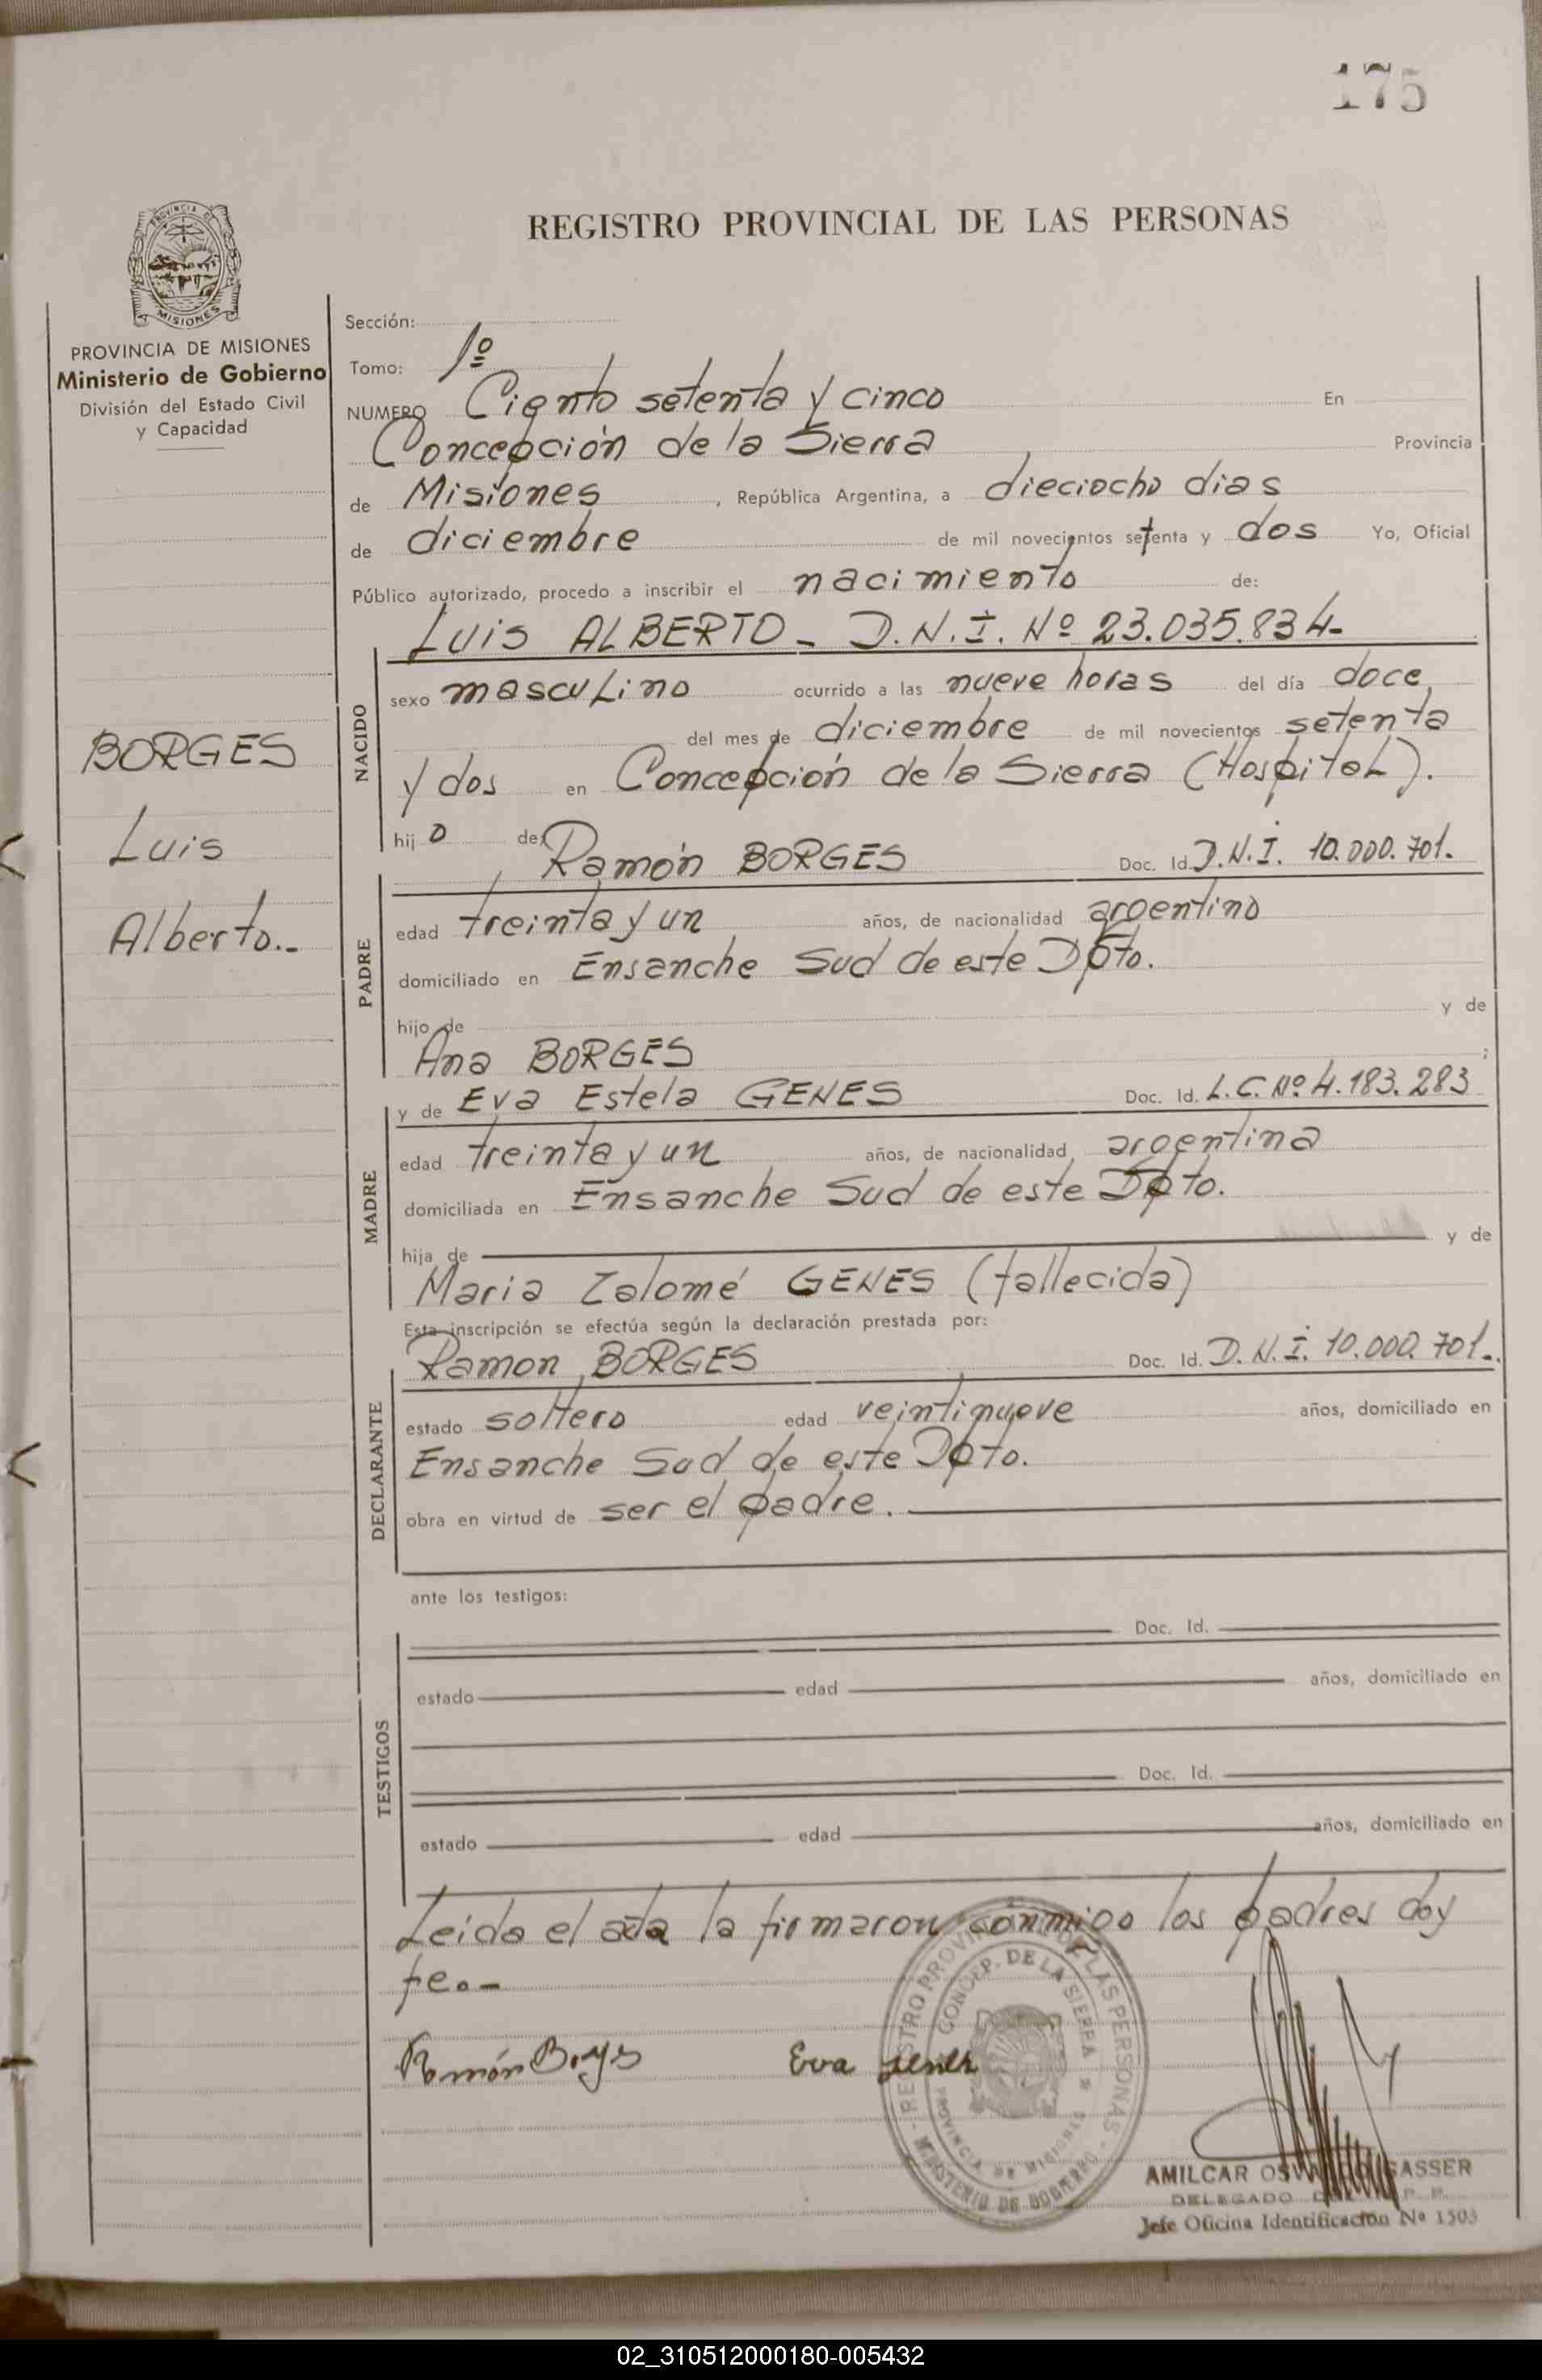 175
REGISTRO PROVINCIAL DE LAS PERSONAS
PROVINCIA DE
MISIONES
PROVINCIA DE MISIONES
Ministerio de Gobierno
División del Estado Civil
y Capacidad
BORGES
Luis
Alberto.-
Sección:
Tomo: 1º
NUMERO Ciento setenta y cinco En
Concepción de la Sierra Provincia
de Misiones, República Argentina, a dieciocho dias
de diciembre de mil novecientos setenta y dos Yo, Oficial
Público autorizado, procedo a inscribir el nacimiento de:
NACIDO
Luis ALBERTO - D.N.I. Nº 23.035.834-
sexo masculino ocurrido a las nueve horas del día doce
del mes de diciembre de mil novecientos setenta
y dos en Concepción de la Sierra (Hospital).
hijo de:
PADRE
Ramón BORGES Doc. Id. D.N.I. 10.000.701.
edad treinta y un años, de nacionalidad argentino
domiciliado en Ensanche Sud de este Dpto.
hijo de y de
Ana BORGES ;
MADRE
y de Eva Estela GENES Doc. Id. L.C. Nº 4.183.283
edad treinta y un años, de nacionalidad argentina
domiciliada en Ensanche Sud de este Dpto.
hija de y de
Maria Zalomé GENES (fallecida)
Esta inscripción se efectúa según la declaración prestada por:
DECLARANTE
Ramon BORGES Doc. Id. D.N.I. 10.000.701-.
estado soltero edad veintinueve años, domiciliado en
Ensanche Sud de este Dpto.
obra en virtud de ser el padre.
ante los testigos:
TESTIGOS
Doc. Id.
estado edad años, domiciliado en
Doc. Id.
estado edad años, domiciliado en
Leida el acta la firmaron conmigo los padres doy
fe.-
Ramón Eva Genes
REGISTRO PROVINCIAL DE LAS PERSONAS - MINISTERIO DE GOBIERNO -
CONCEP. DE LA SIERRA * PROVINCIA DE MISIONES *
AMILCAR OSVALDO GASSER
DELEGADO
Jefe Oficina Identificación Nº 1503
02_310512000180-005432